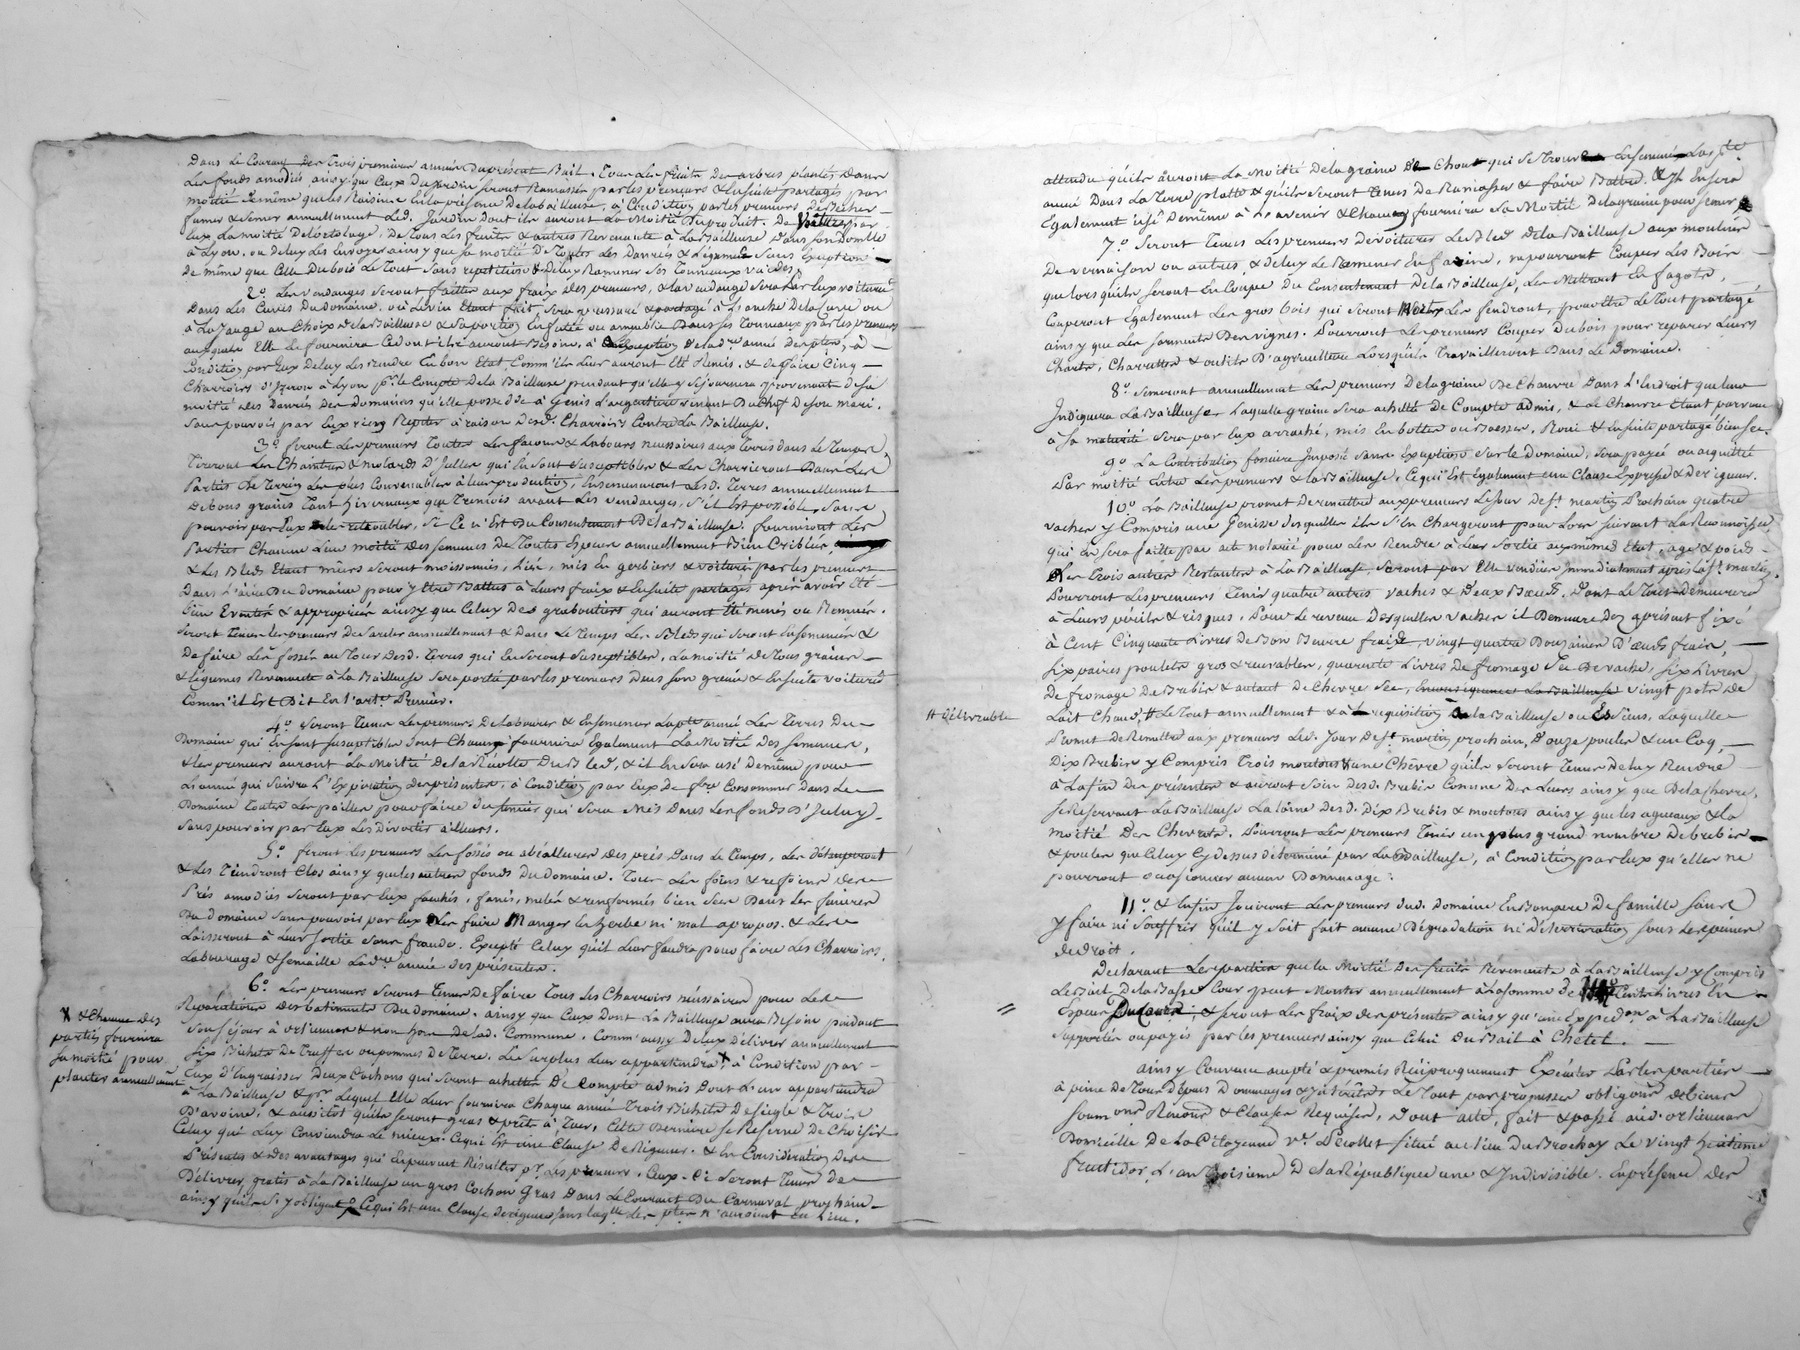 Dans le Courant des trois premieres années Du présent Bail. Tous les fruits Des arbres plantés Dans
Les fonds amodiés ainsy que Ceux Du Jardin seront Ramassés par les preneurs & Ensuite partagés par
moitié De même que les Raisins En la présence De la bailleuse, à Condition par les preneurs De Bécher
fumer & Semer annuellement Led. Jardin Dont ils auront La Moitié Du produit. De Voiturer par
Eux La moitié De tous Les fruits & autres Revenants à La Bailleuse Dans son Domicile
à Lyon, ou De luy Les Envoyer ainsy que sa moitié De Toutes les Danrées & Légumes Sans Exception
De même que Celle Du bois Le Tout Sans repetition & De luy Ramener Ses Tonneaux vuides.
2.° Les vendanges seront faittes aux fraix Des preneurs, & la vendange Sera par Eux voiturée
Dans Les Cuves Du Domaine, où Le vin Etant fait, Sera pressuré & partagé à L'anche De la Cuve ou
à La Jauge au Choix De la Bailleuse & Sa portion Enfutée ou Dans ses Tonneaux par les preneurs
auxquels Elle Le fournira Ce dont ils auront Besoins, à
Condition par Eux De luy Les rendre En bon Etat, Comm'ils Leur auront Eté Remis. & De faire Cinq
Charroirs à Lyon pr. le Compte De la Bailleuse pendant qu'elle y Séjournera provenant De sa
moitié Des Danrées Des Domaines qu'elle possède à Genis L'argentiere venant Du Chef De son mari.
Sans pouvoir par Eux rien Repeter à raison Desd. Charroirs Contre La Bailleuse.
3.° feront Les preneurs Toutes Les façons & Labours nécessaires aux Terres dans Le Temps,
Tireront Les Chaintres & molards D'Icelles qui En sont Susceptibles & Les Charrieront Dans Les
Parties De Terrein Les plus Convenables à leur production, Ensemenceront Lesd. Terres annuellement
De bons grains Tant hivernaux que Tremois avant Les vendanges, S'il Est possible, Sans
pouvoir par Eux, Si Ce n'Est Du Consentement De la Bailleuse. fourniront Les
Parties Chacune Leur moitié Des Semences De Toutes Especes annuellement Bien Criblées,
& Les Bleds Etant mûrs Seront moissonnés, Liés, mis En gerbiers & voiturés par les preneurs
Dans L'aire Du Domaine pour y Etre Battus à Leurs fraix & Ensuite partagés après avoir Eté
Bien Eventés & appropriés ainsy que Celuy Des qui auront Eté
Seront Tenus les preneurs De Sarcler annuellement & Dans Le Temps Les Bleds qui Seront Ensemencés &
De faire Les fossés au Tour Desd. Terres qui En seront Susceptibles. La moitié De Tous grains
& Légumes Revenante à La Bailleuse Sera portée par les preneurs Dans Son grenier & Ensuite voiturée
Comm'il Est Dit En L'art. Premier.
4.° Seront Tenus Les preneurs De Labourer & Ensemencer La pte. année Les Terres Du
Domaine qui En sont Susceptibles dont Chacun fournira Egalement La Moitié Des Semences,
& Les preneurs auront La Moitié De la Récolte Du Bled, & il En Sera usé De même pour
L'année qui Suivra L'Expiration Des présentes, à Condition par Eux De fre. Consommer Dans Le
Domaine Toutes Les pailles pour faire Du fumier qui Sera Mis Dans Les fonds D'Iceluy
Sans pouvoir par Eux Les Divertir ailleurs.
5.° feront Les preneurs Les fossés ou Des prés Dans Le Temps, Les
& Les Tiendront Clos ainsy que les autres fonds Du Domaine. Tous Les foins & refoins Des
Prés amodiés Seront par Eux fauchés, fanés, & renfermés bien Secs Dans Les fenieres
Du Domaine Sans pouvoir par Eux Les faire Manger En herbe ni mal apropos. & Les
Laisseront à Leur Sortie Sans fraude. Excepté Celuy qu'il Leur faudra pour faire Les Charrois,
Labourage & Semaille La dre. année Des présentes.
6.° Les preneurs Seront Tenus De faire Tous Les Charroirs nécessaires pour Les
Reparations Des batiments Du Domaine. ainsy que Ceux Dont La Bailleuse aura Besoin pendant
Son Séjour à & non hors De lad. Commune. Comm'aussy De luy Délivrer annuellement
Six Bichets De Truffes ou pommes De Terre. Le Surplus Leur appartiendra X à Condition par
X & Chacune Des
parties fournira
Sa moitié pour
planter annuellement
Eux D'Engraisser Deux Cochons qui Seront achettés De Compte admis Dont L'un appartiendra
à La Bailleuse & pr. Lequel Elle Leur fournira Chaque année Trois Bichets De Seigle & Trois
D'avoine, & aussitot qu'ils Seront gras & prêts à Tuer, Cette Derniere Se Reserve De Choisir
Celuy qui Luy Conviendra Le mieux. Ce qui Est une Clause De Rigueur. & En Considération Des
Présentes & Des avantages qui En peuvent Résulter pr. Les preneurs, Ceux-Ci Seront Tenus De
Délivrer gratis à La Bailleuse un gros Cochon Gras Dans Le Courant Du Carnaval prochain
ainsy qu'ils S'y obligent, Ce qui Est une Clause De rigueur Sans laqlle. Les ptes. n'auroient Eu Lieu.
attendu qu'ils auront La Moitié De la graine De Choux qui Se Trouve Ensemencés La pte.
année Dans La Terre & qu'ils Seront Tenus De Ramasser & faire Battre. & Il En Sera
Egalement Usé De même à L'avenir & Chacun fournira Sa Moitié De la graine pour Semer
7.° Seront Tenus Les preneurs De voiturer Le Bled De la Bailleuse aux moulins
De vernaison ou autres, & De luy Le Ramener En farine, ne pourront Couper Les Bois
que lors qu'ils Seront En Coupe Du Consentement De la Bailleuse, Les Mettront En fagots,
Couperont Egalement Les gros bois qui Seront Les fendront, pour Etre Le Tout partagé
ainsy que Les Sarments Des vignes. Pourront Les preneurs Couper Du bois pour reparer Leurs
Chars, Charrettes & outils D'agriculture Lorsqu'ils Travailleront Dans Le Domaine.
8.° Semeront annuellement Les preneurs De la graine De Chanvre Dans L'Endroit que leur
Indiquera La Bailleuse Laquelle graine Sera achettée De Compte admis, & Le Chanvre Etant parvenu
à Sa maturité Sera par Eux arraché, mis En bottes ou Masses, Roui & Ensuite partagé bien Sec.
9.° La Contribution fonciere Imposée Sans Exeption Sur le Domaine, Sera payée ou acquittée
Par moitié Entre Les preneurs & La Bailleuse, Ce qui Est Egalement une Clause Expresse & De rigueur.
10.° La Bailleuse promet De remettre aux preneurs Le Jour De St. martin Prochain quatre
vaches y Compris une Genisse Desquelles ils S'En Chargeront pour Lors Suivant La Reconnoissce.
qui En Sera faitte par acte notarié pour Les Rendre à Leur Sortie aux mêmes Etat, age & poids
Les Trois autres Restantes à La Bailleuse, Seront par Elle vendues Immédiatement après la St. martin,
Pourront Les preneurs Tenir quatre autres vaches & Deux Bœufs, Dont Le Tout Demeurera
à Leurs périls & risques. Pour Le revenu Desquelles vaches il Demeure Des apresent fixé
à Cent Cinquante Livres De Bon Beurre frais, vingt quatre Douzaines D'œufs frais,
Six paires poulets gros & recevables, quarante Livres De fromage Sec De vache, Six Livres
De fromage De Brebis & autant De Chevre Sec, vingt pots De
Lait Chaud, # Le Tout annuellement & à La requisition De la Bailleuse ou Es Siens. Laquelle
# Délivrable
Promet De Remettre aux preneurs Led. Jour De St. martin prochain, D'ouze poules & un Coq,
Dix Brebis y Compris Trois moutons & une Chèvre qu'ils Seront Tenus De luy Rendre
à La fin Des présentes & auront Soin Desd. Brebis Comme Des Leurs ainsy que De la Chevre.
Se Reservant La Bailleuse La laine Desd. Dix Brebis & moutons ainsy que les agneaux & La
moitié Des Chevrots. Pourront Les preneurs Tenir un plus grand nombre De brebis
& poules que Celuy Cy Dessus déterminé par La Bailleuse, à Condition par Eux qu'elles ne
pourront occasionner aucun Dommage.
11.° & Enfin Jouiront Les preneurs Dud. Domaine En Bons pere De famille Sans
y faire ni Souffrir qu'il y Soit fait aucune Dégradation ni Déterrioration Sous Les peines
de droit.
Declarant Les parties que la Moitié Des fruits Revenante à La Bailleuse y Compris
Le Bail De la Basse Cour peut Monter annuellement à La Somme De Cents Livres En
Espece, & Seront Les fraix Des présentes ainsy qu'une Expedon. à La Bailleuse
Supportés ou payés par les preneurs ainsy que Celui Du Bail à Chetel.
ainsy Convenu accepté & promis Réciproquement Exécuter par les parties
à peine De Tous Dépens Dommages & Intérêts. Le Tout par promesses obligons. De biens
Soumons. Renons. & Clauses Requises, Dont acte, fait & passé aud.
Domicille De la Citoyenne ve. Decollet Situé au lieu Du Brochay Le vingt huitieme
fructidor L'an Troisieme De la République une & Indivisible. En présence Des